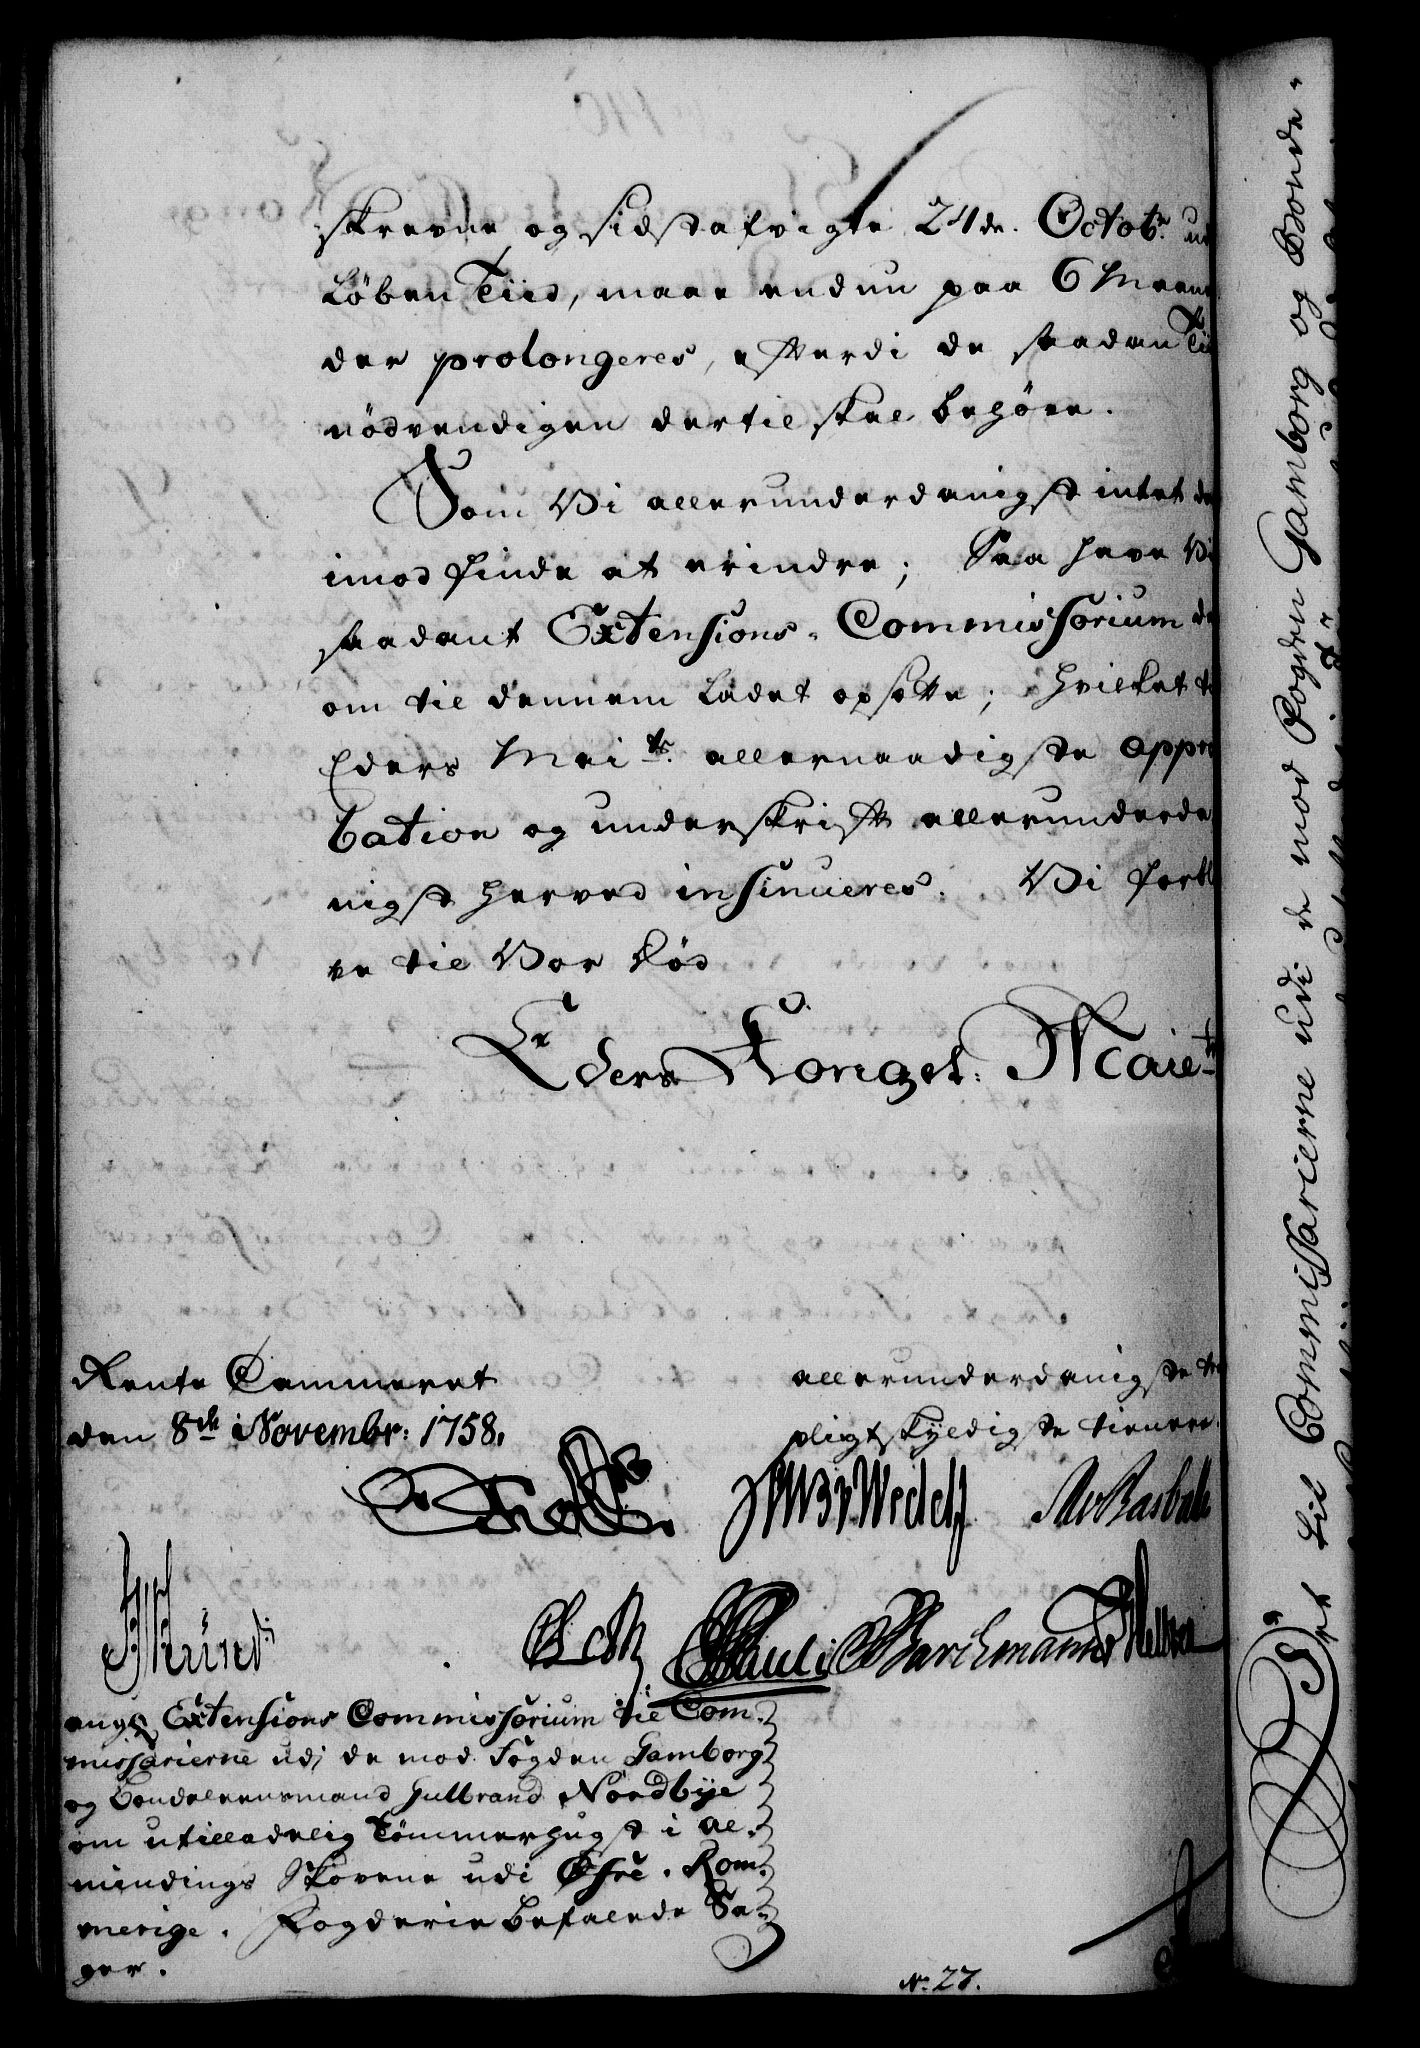 skrevne og sidstafvigte 24de. Octobr.
Løben Tiid, maae endnu paa 6 Maane
der prolongeres, efterdi de saadan Tii
nödvendigen dertil skal behøve.
Som Vi allerunderdanigst intet der
imod finde at erindre; Saa have Vi
saadant Extensions-Commissorium der
om til dennem ladet opsætte; hvilket til
Eders Mai.ts allernaadigste appro
bation og underskrift allerunderda
nigst herved insinueres. Vi forbli
ve til Vor Död
Eders Kongel: Maie.ts
Rente Cammeret
den 8de Novembr: 1758.
allerunderdanigste
pligtskyldigste tienere.
Wedel
Pauli Barchmann
ang: Extensions Commissorium til Com-
missarierne udj de mod Fogden Gamborg
og Bondeleensmand Gulbrand Nordbye
om utilladelig Tömmerhugst i Al-
mindings Skovene udi Øfre-Rom-
merige Fogderie befalede Sa-
ger.
No. 27.
til Commissarierne udi de mod Fogden Gamborg og Bonde-